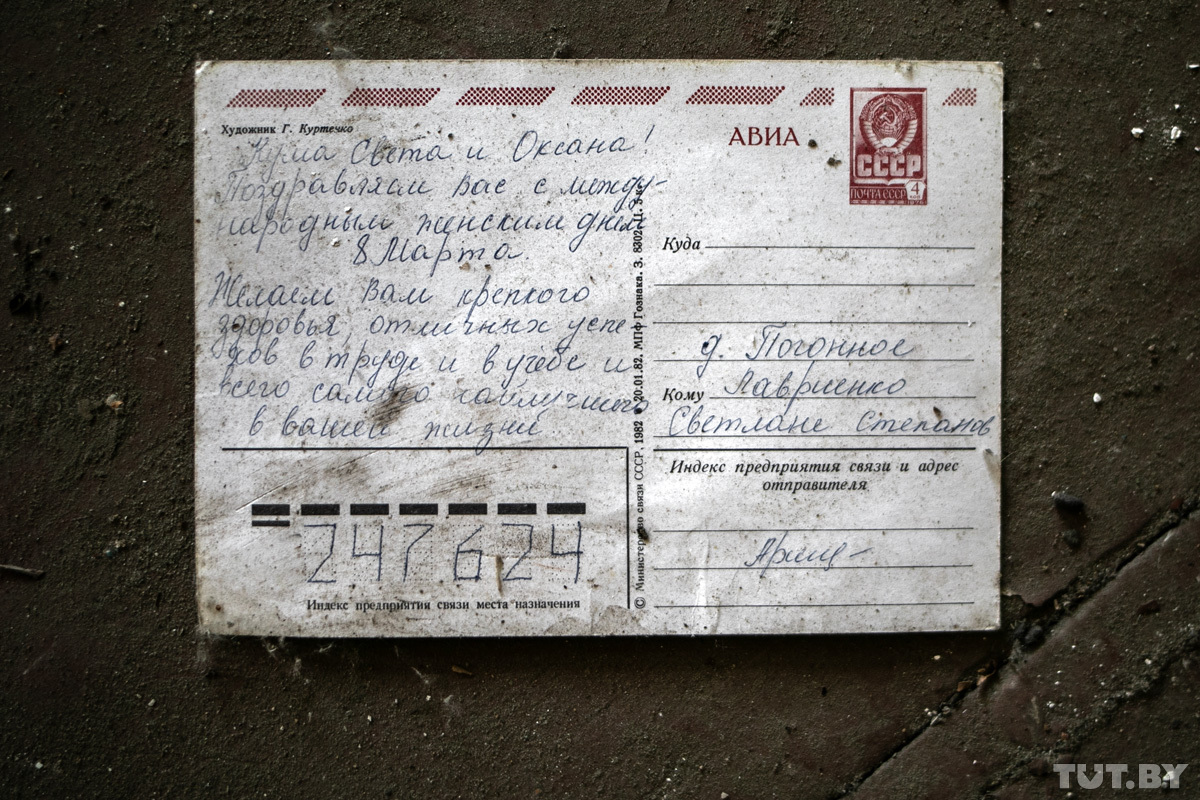 Художник Г. Куртечко
Кума Света и Оксана!
Поздравляем Вас с между-
народным женским днем
8 Марта.
Желаем Вам крепкого
здоровья, отличных успе-
хов в труде и в учебе и
всего самого наилучшего
в вашей жизни
247624
Индекс предприятия связи места назначения
© Министерство связи СССР. 1982 20.01.82. МПФ Гознака. З. 8302. Ц. 5 к.
АВИА
СССР
ПОЧТА СССР 4
Куда
д. Погонное
Кому Лавриенко
Светлане Степанов
Индекс предприятия связи и адрес
отправителя
TUT.BY